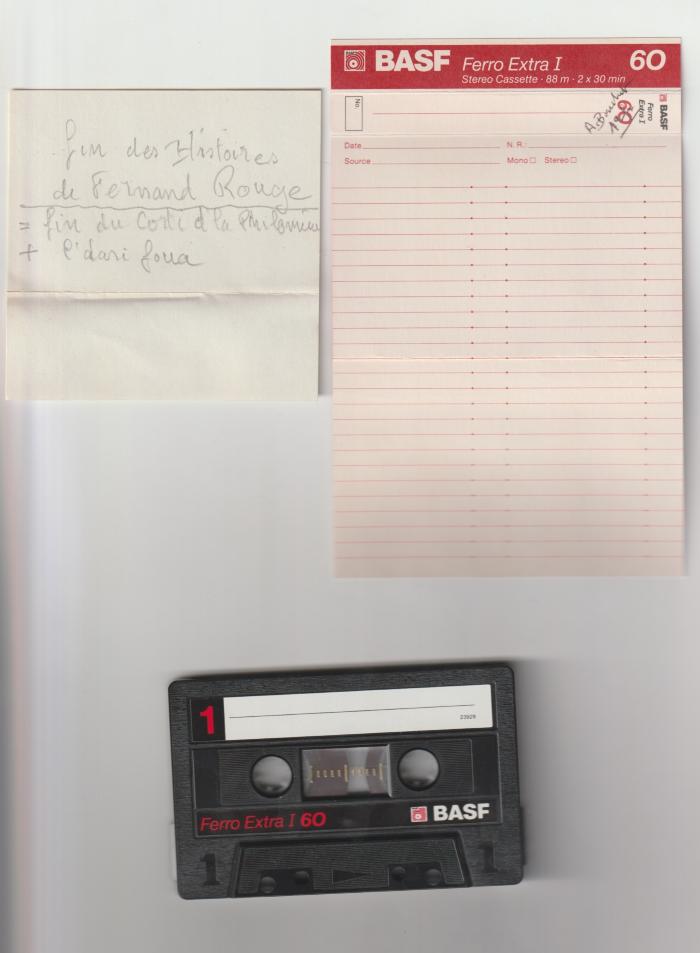 fin des Histoires
de Fernand Rouge
= fin du Conte d la Philomène
+ l'dari foua
BASF Ferro Extra I 60
Stereo Cassette · 88 m · 2 x 30 min
No.
60
Ferro
Extra I
BASF
Date N. R.:
Source Mono Stereo
1
23929
Ferro Extra I 60 BASF
1 1